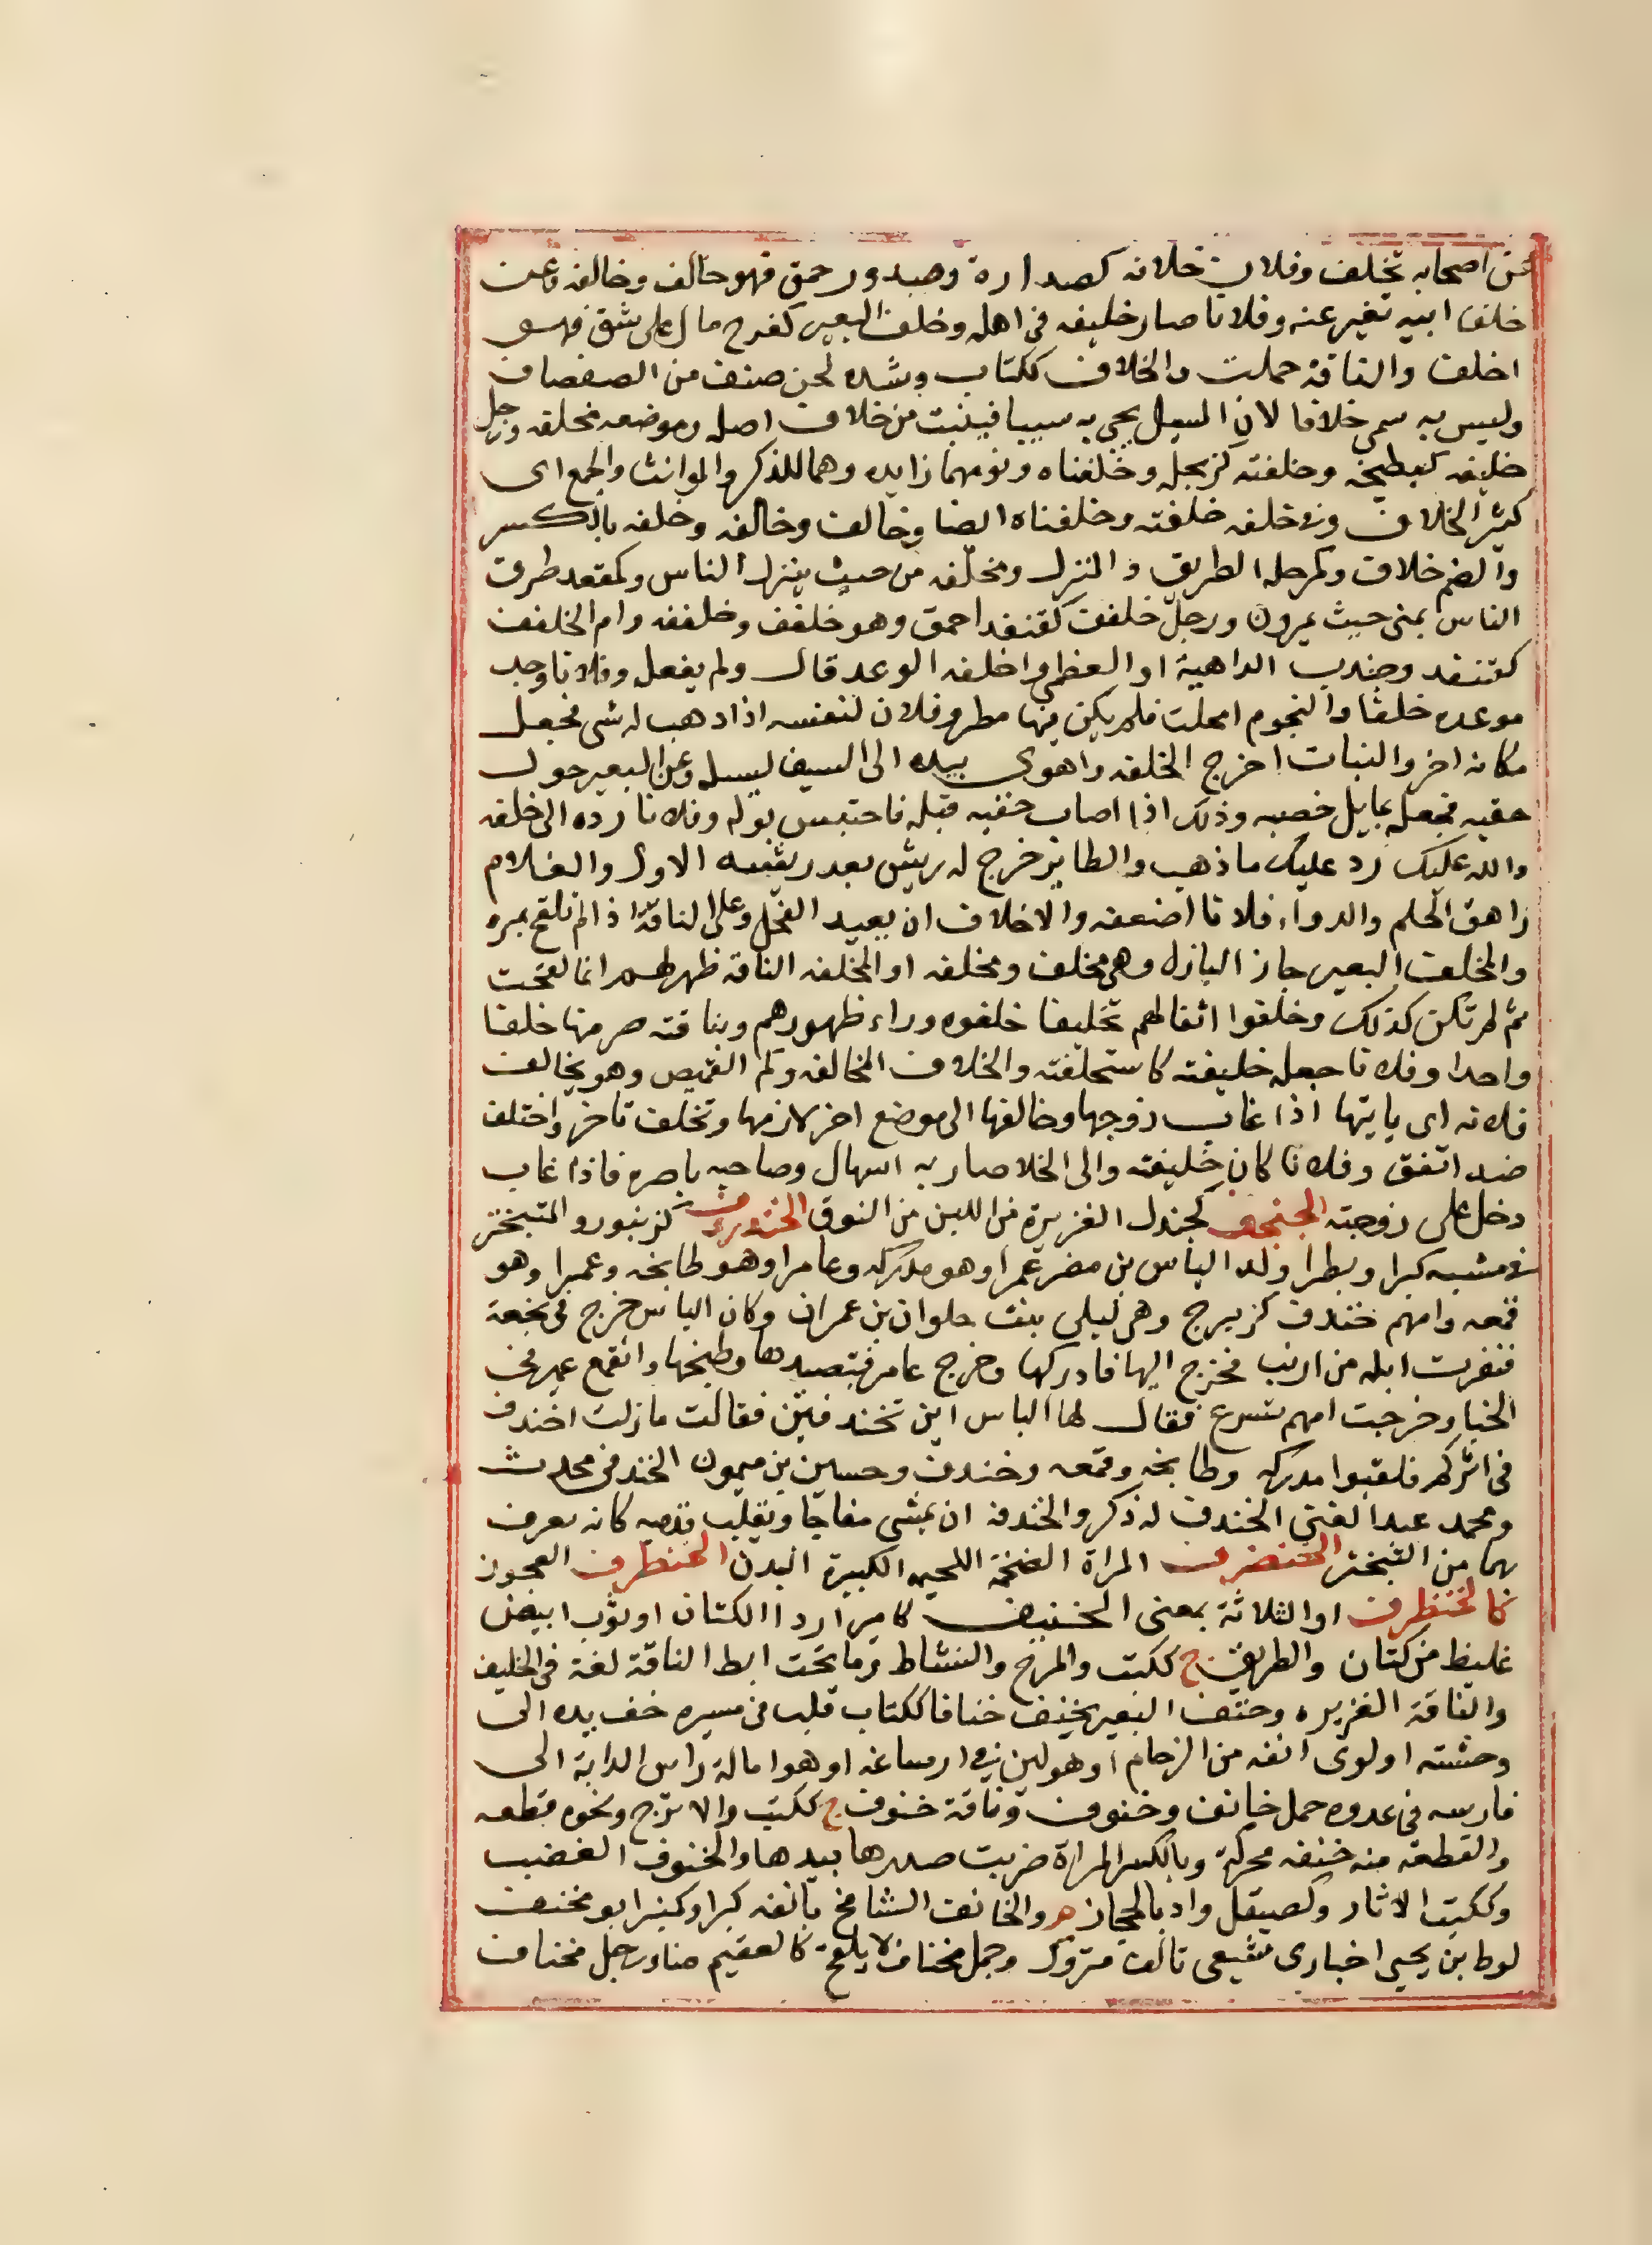 عن اصحابه تخلف وفلان خلانه كصدارة وصدور حمق فهو خالف وخالفه وعن
خلف ابيه تغير عنه وفلانا صار خليفه فى اهله وخلف البعير كفرح مال على شق فهو
اخلف والناقة حملت والخلاف ككتاب وشده لحن صنف من الصفصاف
وليس به سمى خلافا لان السيل يجى به سببا فينبت من خلاف اصله وموضعه مخلقه ورجل
خليفه كبطيخه وخلفته كربحله وخلفناه ونونهما زايده وهما للذكر والموانث والجمع اى
كثير الخلاف وفى خلفه خلفته وخلفناه ايضا وخالف وخالفه وخلفه بالكسر
والضم خلاف وكمرحله الطريق والمنزل ومخلفه من حيث ينزل الناس وكمقعد طرق
الناس بمنى حيث يمرون ورجل خلفف كقنفد احمق وهو خلفف وخلففه وام الخلفف
كقنفد وجندب الداهية او العظمى واخلفه الوعد قال ولم يفعل وفلانا وجد
موعده خلفا والنجوم امحلت فلم يكن فيها مطر وفلان لنفسه اذا ذهب له شى فجعل
مكانه اخر والنبات اخرج الخلفه واهوى بيده الى السيف ليسله وعن البعير حول
حقبه فجعله مما يلى خصيه وذلك اذا اصاب حقبه قبله فاحتبس بوله وفلانا رده الى خلفه
والله عليك رد عليك ما ذهب والطاير خرج له ريش بعد ريشه الاول والغلام
راهق الحلم والدواء فلانا اضعفه والاخلاف ان يعيد الفحل وعلى الناقة اذا لم تلقح بمره
والمخلف البعير جاز البازل وهى مخلف ومخلفه او المخلفه الناقه ظهر لهم انها لقحت
ثم لم تكن كذلك وخلفوا اثقالهم تخليفا خلفوه وراء ظهورهم وبناقته صر منها خلفا
واحدا وفلانا جعله خليفته كاستخلفته والخلاف المخالفه وكم القميص وهو يخالف
فلانه اى ياتيها اذا غاب زوجها وخالفها الى موضع اخر لازمها وتخلف تاخر واختلف
ضد اتفق وفلانا كان خليفته والى الخلا صار به اسهال وصاحبه باصره فاذا غاب
دخل على زوجته الخنجف كجندل الغزيرة من اللبن من النوق الخندروف كزنبورو المتبختر
فى مشيه كبرا وبطرا ولد الياس بن مضر عمرا وهو مدركه وعامرا وهو طابخه وعميرا وهو
قمعه وامهم خندف كزبرج وهى ليلى بنت حلوان بن عمران وكان الياس خرج فى نجعة
فنفرت ابله من ارنب فخرج اليها فادركها وخرج عامر فتصيدها وطبخها وانقمع عمير فى
الخبا وخرجت امهم تسرع فقال لها الياس اين تخندفين فقالت ما زلت اخندف
فى اثركم فلقبوا مدركه وطابخه وقمعه وخندف وحسين بن ميمون الخندفى محدث
ومحمد عبد الغنى الخندف له ذكر والخندفه ان يمشى مفاجا ويقلب قدميه كانه يعرف
بهما من التبختر الخنضرف المراة الضخمة اللحيمه الكبيرة البدن الخنطرف العجوز
كالخنظرف او الثلاثة بمعنى الخنيف كامير اردا الكتان او ثوب ابيض
غليظ من كتان والطريق ج ككتب والمرح والنشاط وما تحت ابط الناقة لغة فى الخليف
والناقة الغزيره وخنف البعير يخنف خنافا ككتاب قلب فى مسيره خف يده الى
وحشته او لوى انفه من الزحام او هو لين فى ارساغه او هو امالة راس الدابة الى
فارسه فى عدوه حمل خانف وخنوف وناقة خنوف ج ككتب والاترج ونحوه قطعه
والقطعه منه خنفه محركة وبالكسر المراة ضربت صدرها بيدها والخنوف الغضب
وككتب الاثار وكصيقل واد بالحجاز هو والخانف الشامخ بانفه كبرا وكمنبر ابو مخنف
لوط بن يحيى اخبارى شيعى تالف متروك وجمل مخناف لا يلقح كالعقيم منا ورجل مخناف